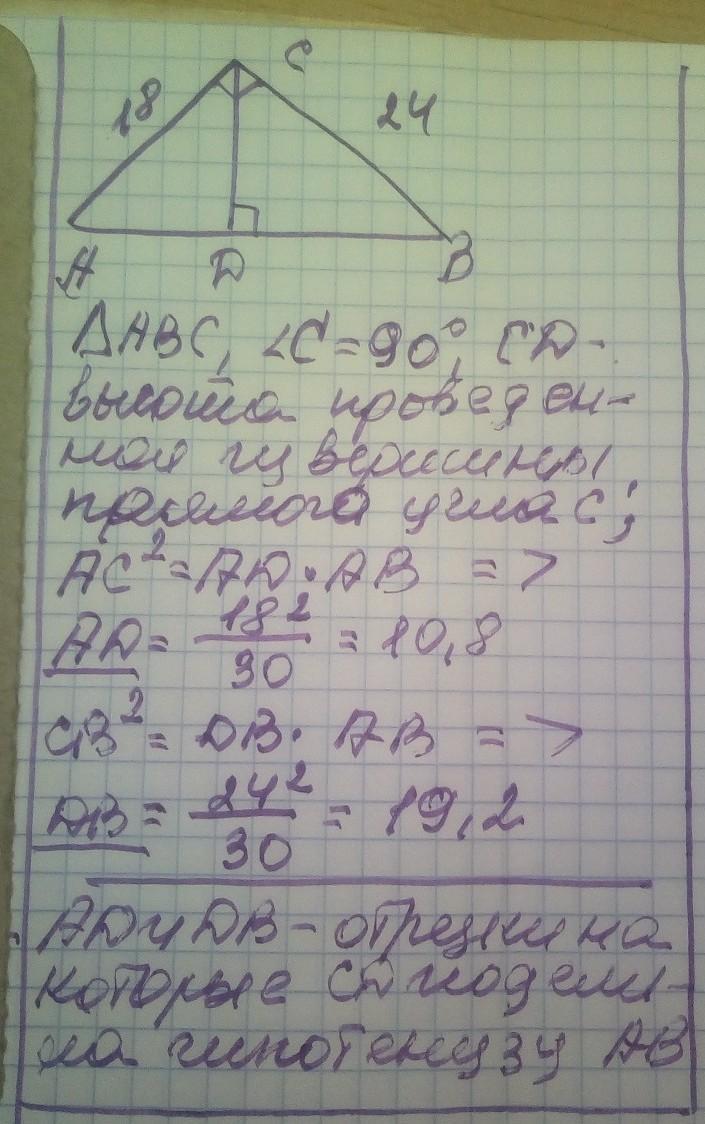 C
18
24
A D B
ΔABC, ∠C=90°, CD-
высота проведен-
ная из вершины
прямого угла C;
AC²=AD·AB =>
AD= 18²/30 = 10,8
CB²= DB· AB =>
DB= 24²/30 = 19,2
AD и DB - отрезки на
которые CD подели-
ла гипотенузу AB